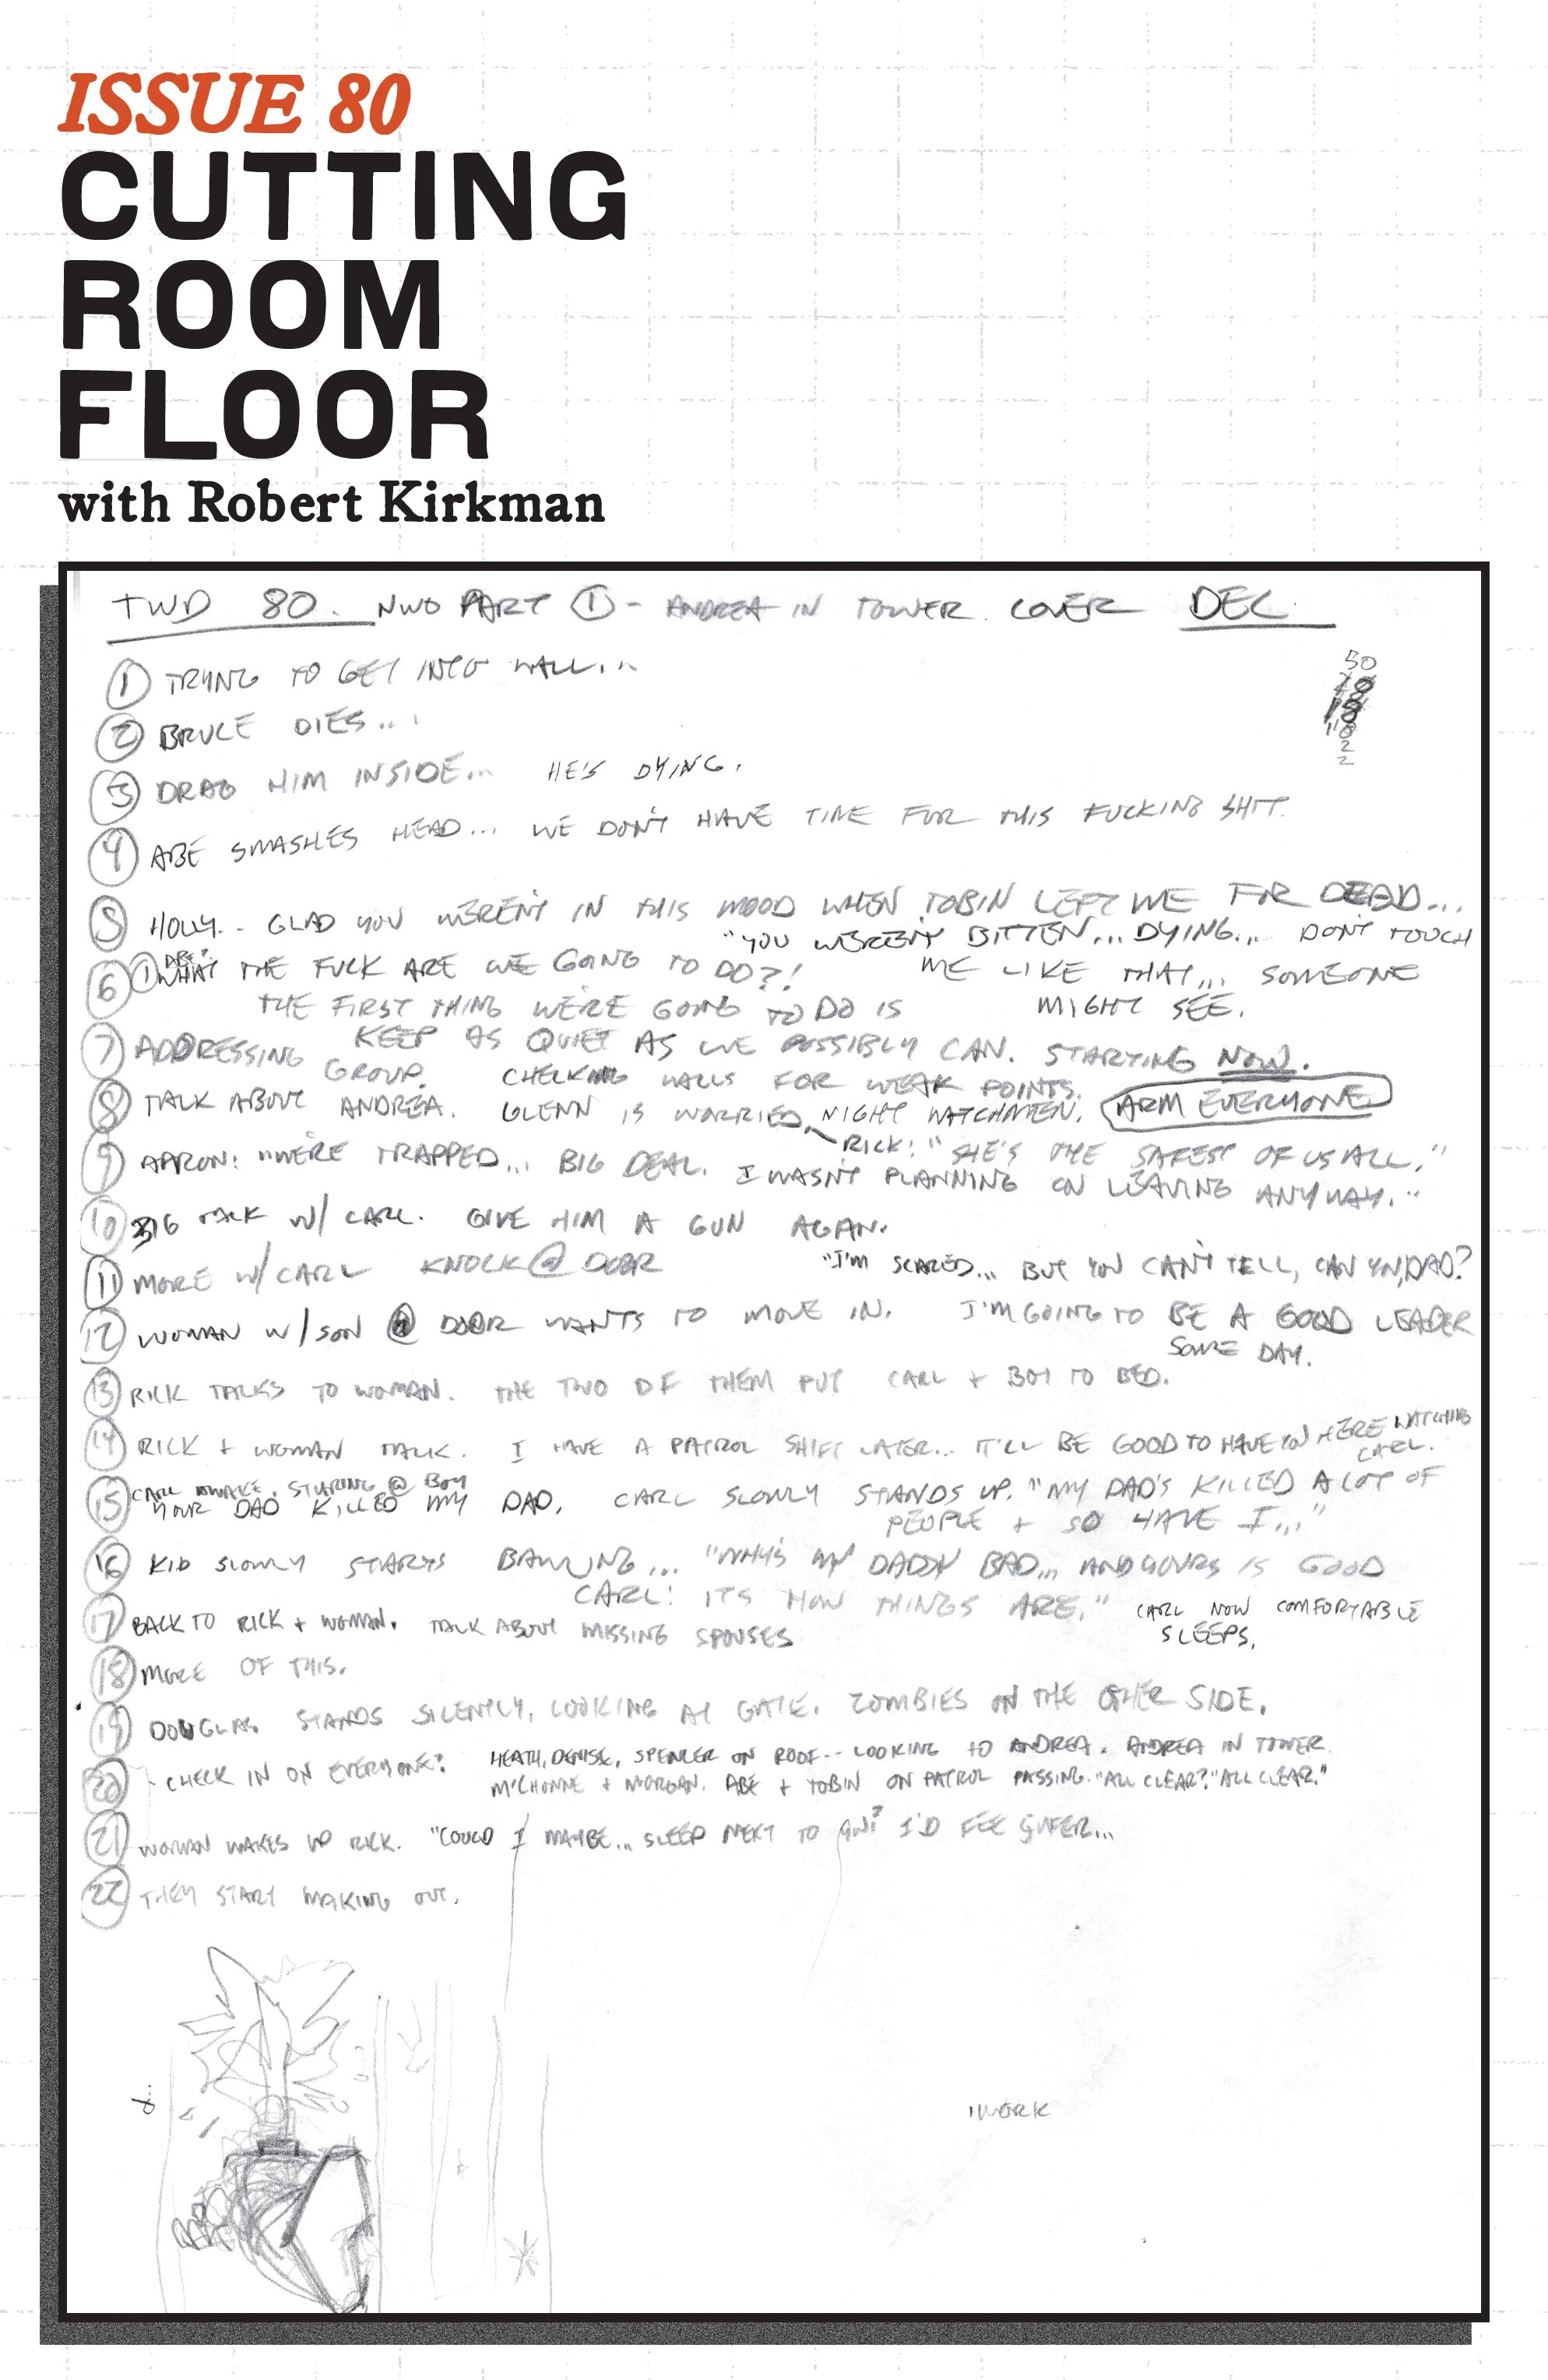 ISSUE 80
CUTTING
ROOM
FLOOR
with Robert Kirkman
TWD 80. NWO PART ① - ANDREA IN TOWER COVER DEC.
50
2
2
① TRYING TO GET INTO WALL...
② BRUCE DIES...
③ DRAG HIM INSIDE... HE'S DYING.
④ ABE SMASHES HEAD... WE DON'T HAVE TIME FOR THIS FUCKING SHIT.
⑤ HOLLY.. GLAD YOU WEREN'T IN THIS MOOD WHEN TOBIN LEFT ME FOR DEAD...
"YOU WEREN'T BITTEN... DYING... DON'T TOUCH
ME LIKE THAT... SOMEONE
MIGHT SEE.
⑥ ① ABE: WHAT THE FUCK ARE WE GOING TO DO?!
THE FIRST THING WE'RE GOING TO DO IS
KEEP AS QUIET AS WE POSSIBLY CAN. STARTING NOW.
⑦ ADDRESSING GROUP. CHECKING WALLS FOR WEAK POINTS.
NIGHT WATCHMEN. ARM EVERYONE
⑧ TALK ABOUT ANDREA. GLENN IS WORRIED.
RICK: "SHE'S THE SAFEST OF US ALL."
⑨ AARON: "WE'RE TRAPPED... BIG DEAL. I WASN'T PLANNING ON LEAVING ANYWAY."
⑩ BIG TALK W/ CARL. GIVE HIM A GUN AGAIN.
⑪ MORE W/ CARL KNOCK @ DOOR "I'M SCARED... BUT YOU CAN'T TELL, CAN YOU, DAD?
I'M GOING TO BE A GOOD LEADER
SOME DAY.
⑫ WOMAN W/ SON @ DOOR WANTS TO MOVE IN.
⑬ RICK TALKS TO WOMAN. THE TWO OF THEM PUT CARL + BOY TO BED.
⑭ RICK + WOMAN TALK. I HAVE A PATROL SHIFT LATER... IT'LL BE GOOD TO HAVE YOU HERE WATCHING
CARL.
⑮ CARL AWAKE, STARING @ BOY
YOUR DAD KILLED MY DAD. CARL SLOWLY STANDS UP. "MY DAD'S KILLED A LOT OF
PEOPLE + SO HAVE I..."
⑯ KID SLOWLY STARTS BAWLING... "WHY'S MY DADDY BAD... AND YOURS IS GOOD
CARL: ITS HOW THINGS ARE." CARL NOW COMFORTABLE
SLEEPS.
⑰ BACK TO RICK + WOMAN. TALK ABOUT MISSING SPOUSES
⑱ MORE OF THIS.
⑲ DOUGLAS STANDS SILENTLY, LOOKING AT GATE. ZOMBIES ON THE OTHER SIDE.
⑳ CHECK IN ON EVERYONE? HEATH, DENISE, SPENCER ON ROOF-- LOOKING TO ANDREA. ANDREA IN TOWER
MICHONNE + MORGAN. ABE + TOBIN ON PATROL PASSING. "ALL CLEAR?" "ALL CLEAR."
㉑ WOMAN WAKES UP RICK. "COULD I MAYBE... SLEEP NEXT TO YOU? I'D FEEL SAFER...
㉒ THEY START MAKING OUT.